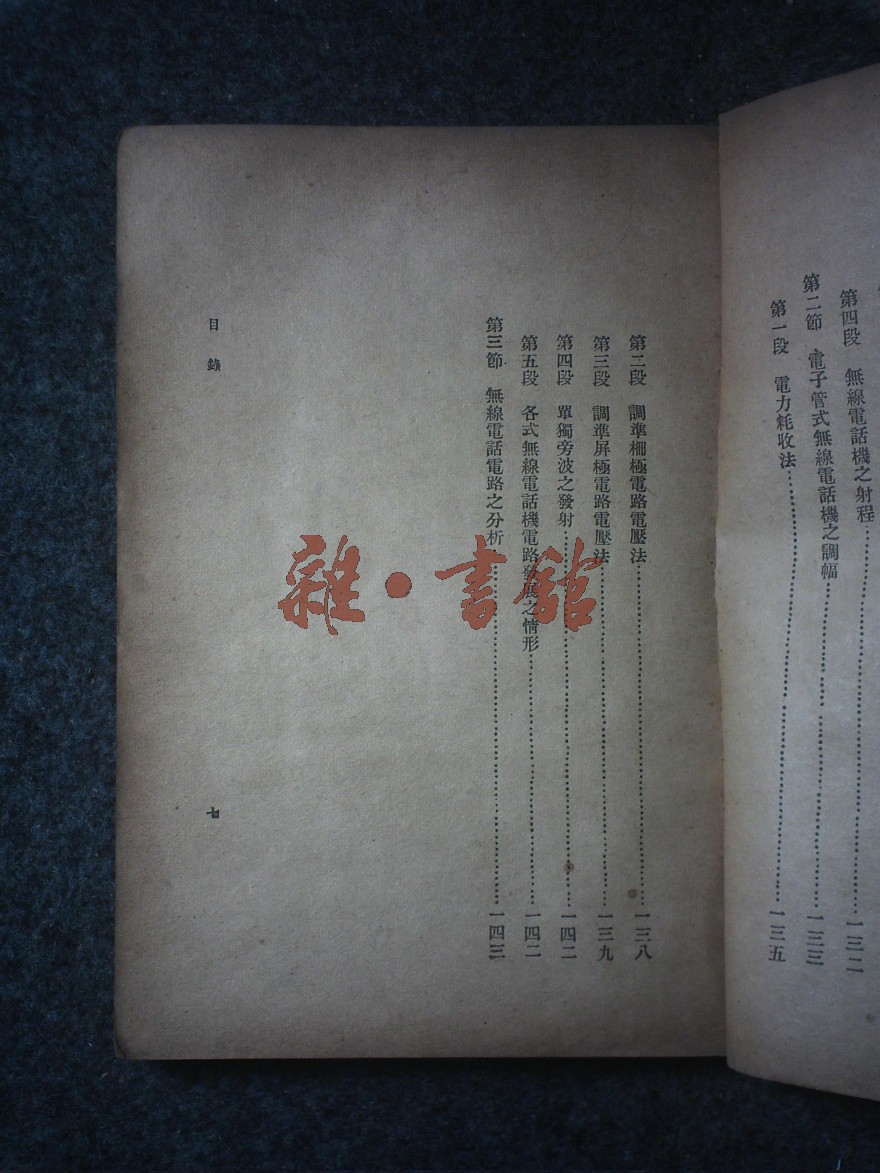 第四段 無線電話機之射程……一三二
第二節 電子管式無線電話機之調幅……一三三
第一段 電力耗收法……一三五
第二段 調準柵極電路電壓法……一三八
第三段 調準屏極電路電壓法……一三九
第四段 單獨旁波之發射……一四二
第五段 各式無線電話機電路發展之情形……一四二
第三節 無線電話電路之分析……一四三
目錄
雜·書館